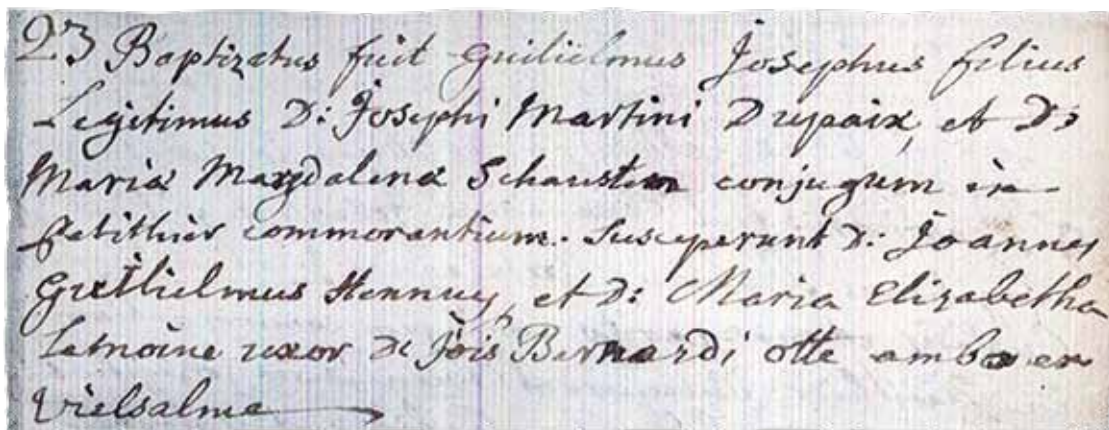 23 Baptizatus fuit Guilielmus Josephus filius
Legitimus D: Josephi Martini Dupaix, et D:
Mariæ Magdalenæ Schausten conjugum in
petithier commorantium. Susceperunt D: Joannes
Guilielmus Hennuy, et D: Maria Elizabetha
uxor D: Jõis Bernardi otte ambo ex
vielsalme